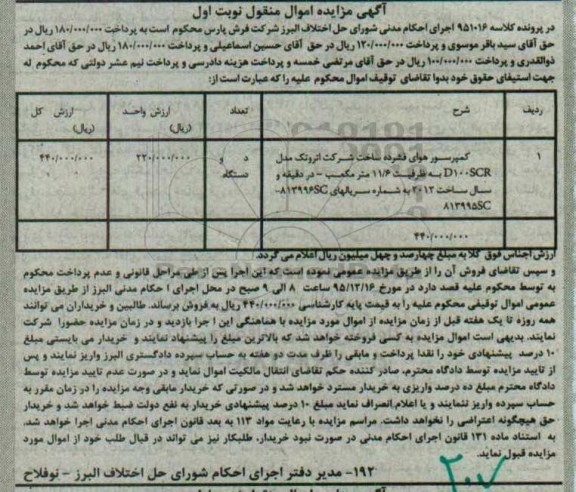 آگهی مزایده اموال منقول نوبت اول
در پرونده کلاسه ۹۵۱۰۱۶ اجرای احکام مدنی شورای حل اختلاف البرز شرکت فرش پارس محکوم است به پرداخت ۱۸۰/۰۰۰/۰۰۰ ریال در
حق آقای سید باقر موسوی و پرداخت ۱۲۰/۰۰۰/۰۰۰ ریال در حق آقای حسین اسماعیلی و پرداخت ۱۸۰/۰۰۰/۰۰۰ ریال در حق آقای احمد
ذوالقدری و پرداخت ۱۰۰/۰۰۰/۰۰۰ ریال در حق آقای مرتضی خمسه و پرداخت هزینه دادرسی و پرداخت نیم عشر دولتی که محکوم له
جهت استیفای حقوق خود بدوا تقاضای توقیف اموال محکوم علیه را که عبارت است از:
ردیف شرح تعداد ارزش واحد (ریال) ارزش کل (ریال)
۱ کمپرسور هوای فشرده ساخت شرکت اتروتک مدل د و ۲۲۰/۰۰۰/۰۰۰ ۴۴۰/۰۰۰/۰۰۰
D۱۰۰SCR به ظرفیت ۱۱/۶ متر مکعب - در دقیقه و دستگاه
سال ساخت ۲۰۱۲ به شماره سریالهای ۸۱۳۹۹۶SC-
۸۱۳۹۹۵SC
۴۴۰/۰۰۰/۰۰۰
ارزش اجناس فوق کلا به مبلغ چهارصد و چهل میلیون ریال اعلام می گردد.
و سپس تقاضای فروش آن را از طریق مزایده عمومی نموده است که این اجرا پس از طی مراحل قانونی و عدم پرداخت محکوم
به توسط محکوم علیه قصد دارد در مورخ ۹۵/۱۲/۱۶ ساعت ۸ الی ۹ صبح در محل اجرای احکام مدنی البرز از طریق مزایده
عمومی اموال توقیفی محکوم علیه را به قیمت پایه کارشناسی ۴۴۰/۰۰۰/۰۰۰ ریال به فروش برساند. طالبین و خریداران می توانند
همه روزه تا یک هفته قبل از زمان مزایده از اموال مورد مزایده با هماهنگی این اجرا بازدید و در زمان مزایده حضورا شرکت
نمایند. بدیهی است اموال مزایده به کسی فروخته خواهد شد که بالاترین مبلغ را پیشنهاد نمایند و خریدار می بایستی مبلغ
۱۰ درصد پیشنهادی خود را نقدا پرداخت و مابقی را ظرف مدت دو هفته به حساب سپرده دادگستری البرز واریز نمایند و پس
از تایید مزایده توسط دادگاه محترم، صادر کننده حکم تقاضای انتقال مالکیت اموال نماید و در صورت عدم تایید مزایده توسط
دادگاه محترم مبلغ ده درصد واریزی به خریدار مسترد خواهد شد و در صورتی که خریدار مابقی وجه مزایده را در زمان مقرر به
حساب سپرده واریز ننمایند و یا اعلام انصراف نماید مبلغ ۱۰ درصد پیشنهادی خریدار به نفع دولت ضبط خواهد شد و خریدار
حق هیچگونه اعتراضی را نخواهد داشت. مراسم مزایده با رعایت مواد ۱۱۳ به بعد قانون اجرای احکام مدنی اجرا خواهد شد.
به استناد ماده ۱۳۱ قانون اجرای احکام مدنی در صورت نبود خریدار، طلبکار نیز می تواند در قبال طلب خود از اموال مورد
مزایده قبول نماید.
۱۹۲- مدیر دفتر اجرای احکام شورای حل اختلاف البرز - نوفلاح